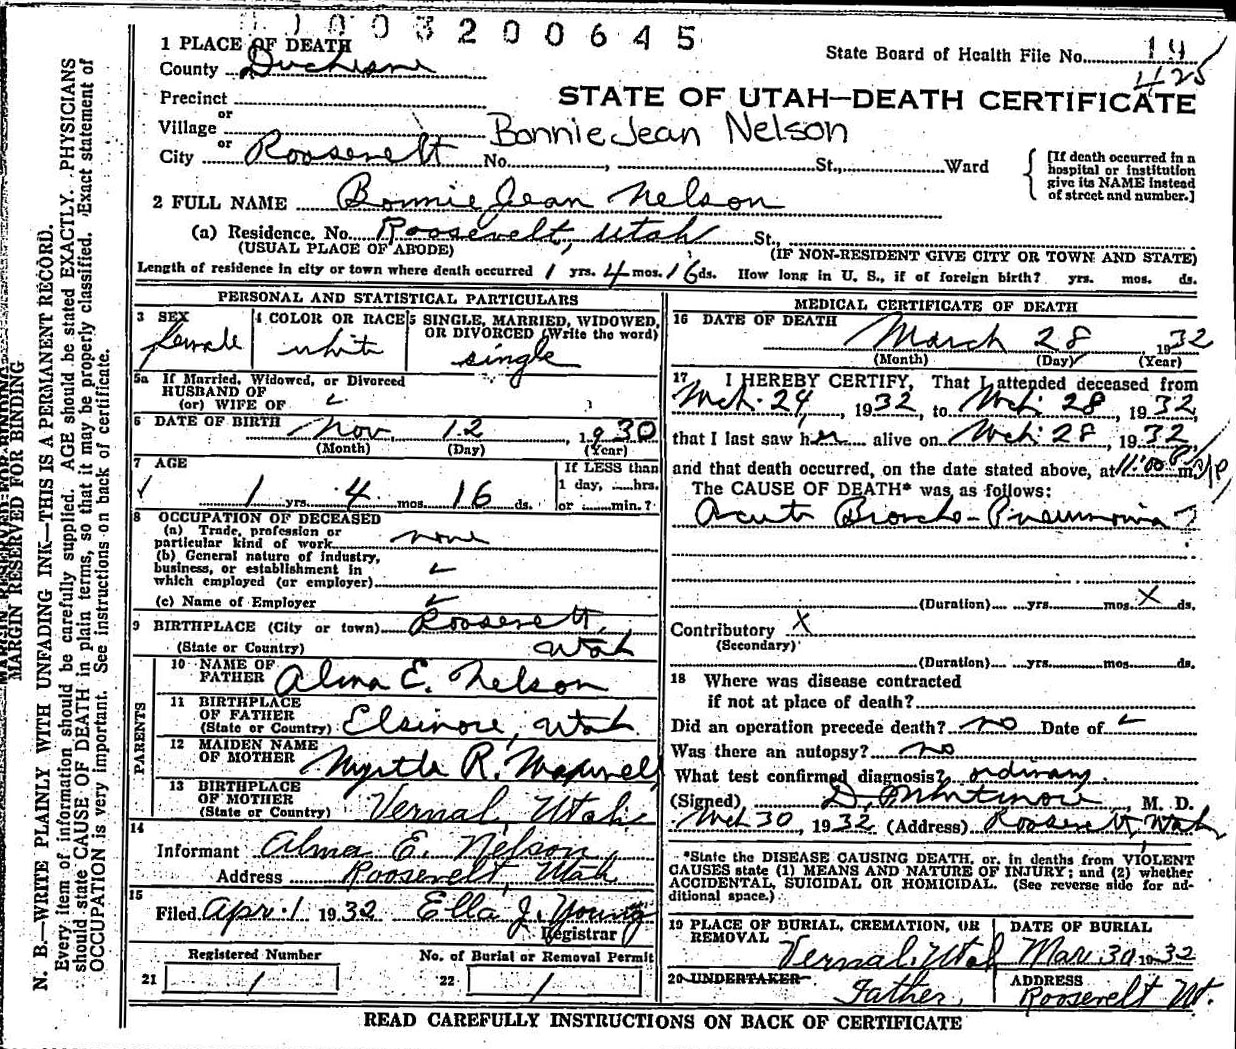 003200645
1 PLACE OF DEATH
County Duchesne
State Board of Health File No. 19
425
STATE OF UTAH—DEATH CERTIFICATE
Precinct
or
Village
Bonnie Jean Nelson
or
City Roosevelt No. , St., Ward
[If death occurred in a
hospital or institution
give its NAME instead
of street and number.]
2 FULL NAME Bonnie Jean Nelson
(a) Residence. No. Roosevelt, Utah St.,
(USUAL PLACE OF ABODE) (IF NON-RESIDENT GIVE CITY OR TOWN AND STATE)
Length of residence in city or town where death occurred 1 yrs. 4 mos. 16 ds. How long in U. S., if of foreign birth? yrs. mos. ds.
PERSONAL AND STATISTICAL PARTICULARS
3 SEX
female
4 COLOR OR RACE
white
5 SINGLE, MARRIED, WIDOWED,
OR DIVORCED (Write the word)
single
5a If Married, Widowed, or Divorced
HUSBAND OF
(or) WIFE OF
6 DATE OF BIRTH Nov. 12 , 1930
(Month) (Day) (Year)
7 AGE
1 yrs. 4 mos. 16 ds.
If LESS than
1 day, hrs.
or min.?
8 OCCUPATION OF DECEASED
(a) Trade, profession or
particular kind of work none
(b) General nature of industry,
business, or establishment in
which employed (or employer)
(c) Name of Employer
9 BIRTHPLACE (City or town) Roosevelt,
(State or Country) Utah
PARENTS
10 NAME OF
FATHER Alma E. Nelson
11 BIRTHPLACE
OF FATHER
(State or Country) Elsinore, Utah
12 MAIDEN NAME
OF MOTHER Myrtle R. Maxwell
13 BIRTHPLACE
OF MOTHER
(State or Country) Vernal, Utah
14
Informant Alma E. Nelson
Address Roosevelt, Utah
15
Filed Apr. 1 1932 Ella J. Young
Registrar
Registered Number
21 1
No. of Burial or Removal Permit
22 1
MEDICAL CERTIFICATE OF DEATH
16 DATE OF DEATH
March 28 1932
(Month) (Day) (Year)
17 I HEREBY CERTIFY, That I attended deceased from
Mch. 24, , 1932, to Mch 28, 1932,
that I last saw her alive on Mch 28, 1932,
and that death occurred, on the date stated above, at 11:00 P m.
The CAUSE OF DEATH* was as follows:
Acute Broncho-Pneumonia
(Duration) yrs. mos. X ds.
Contributory X
(Secondary)
(Duration) yrs. mos. ds.
18 Where was disease contracted
if not at place of death?
Did an operation precede death? no Date of
Was there an autopsy? no
What test confirmed diagnosis? ordinary
(Signed) , M. D.
Mch 30, 1932 (Address) Roosevelt, Utah
*State the DISEASE CAUSING DEATH, or, in deaths from VIOLENT
CAUSES state (1) MEANS AND NATURE OF INJURY; and (2) whether
ACCIDENTAL, SUICIDAL OR HOMICIDAL. (See reverse side for ad-
ditional space.)
19 PLACE OF BURIAL, CREMATION, OR
REMOVAL
Vernal, Utah
DATE OF BURIAL
Mar 30 1932
20 UNDERTAKER
Father,
ADDRESS
Roosevelt Ut.
READ CAREFULLY INSTRUCTIONS ON BACK OF CERTIFICATE
MARGIN RESERVED FOR BINDING
N. B.—WRITE PLAINLY WITH UNFADING INK—THIS IS A PERMANENT RECORD.
Every item of information should be carefully supplied. AGE should be stated EXACTLY. PHYSICIANS
should state CAUSE OF DEATH in plain terms, so that it may be properly classified. Exact statement of
OCCUPATION is very important. See instructions on back of certificate.